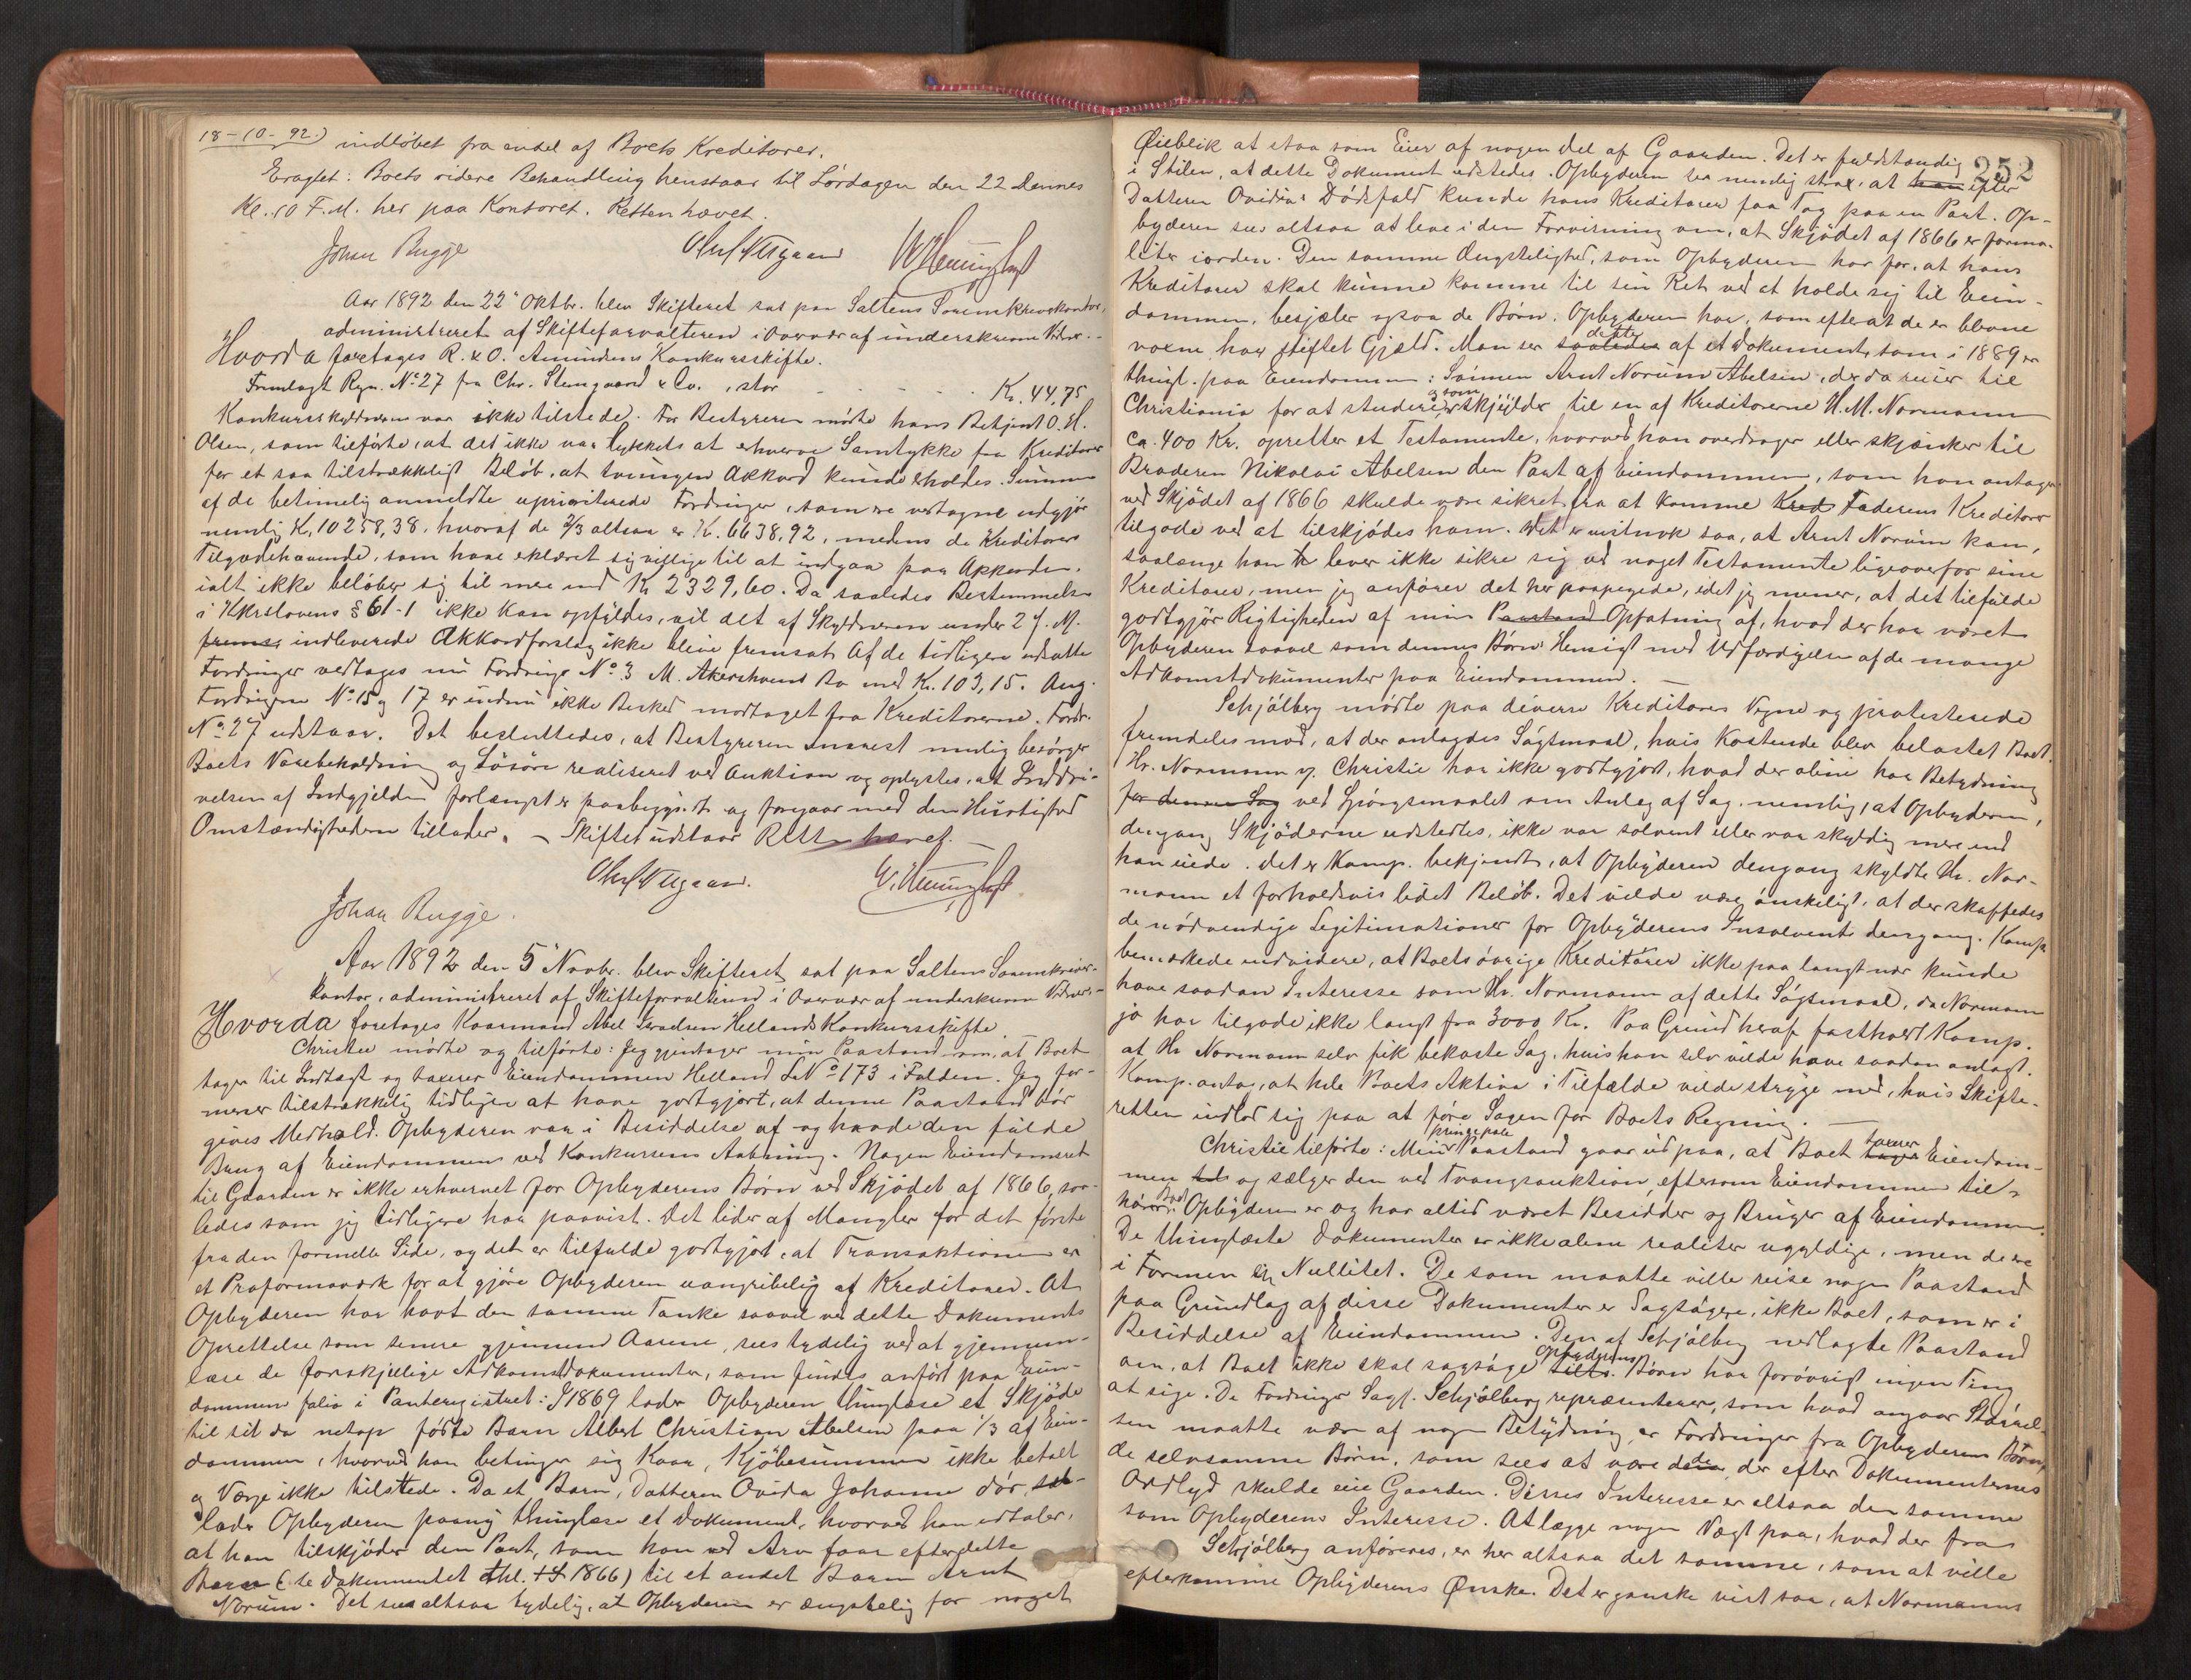 18-10-92.) indløbet fra endel af Boets Kreditorer.
Eragtet: Boets videre Behandling henstaar til Lørdagen den 22 dennes
Kl. 10 F.M. her paa Kontoret. Retten hævet.
Johan Bugge
Aar 1892 den 22 Oktbr. blev Skifteret sat paa Saltens Sorenskriverkontor,
administreret af Skifteforvalteren i Overvær af underskrevne Vidner. -
Hvorda foretages R. & O. Amundsens Konkursskifte.
Fremlagt Regn. No 27 fra Chr. Steengaard & Co., stor - - - - Kr. 44,75
Konkursskyldneren var ikke tilstede. For Bestyreren mødte hans Betjent O. H.
Olsen, som tilførte, at det ikke var lykkets at erhverve Samtykke fra Kreditorer
for et saa tilstrækkeligt Beløb, at tvungen Akkord kunde erholdes. Summen
af de betimelig anmeldte uprioriterede Fordringer, som ere vedtagne udgjør
nemlig Kr. 10258,38, hvoraf de 2/3 altsaa er Kr. 6638,92, medens de Kreditorers
Tilgodehavende, som have erklæret sig villige til at indgaa paa Akkorden,
ialt ikke beløber sig til mere end Kr 2329,60. Da saaledes Bestemmelsen
i Kkrslovens § 61-1 ikke kan opfyldes, vil det af Skyldneren under 2 f. M.
frems. indleverede Akkordforslag ikke blive fremsat. Af de tidligere udsatte
Fordringer vedtages nu Fordringe No 3 M. Akershoems Bo med Kr. 103,15. Ang.
Fordringerne No 15 og 17 er endnu ikke Besked modtaget fra Kreditorerne. Fordr.
No 27 udstaar. Det besluttedes, at Bestyreren snarest mulig besørger
Boets Varebeholdning og Løsøre realiseret ved Auktion og oplystes, at Inddri-
velsen af Indgjelden forlængst er paabegyndt og foregaar med den Hurtighed
Omstændighederne tillader. - Skiftet udstaar Retten hævet. -
Johan Bugge.
Aar 1892 den 5 Novbr. blev Skifteret sat paa Saltens Sorenskriver-
kontor, administreret af Skifteforvalteren i Overvær af underskrevne Vidner -
Hvorda foretages Kaarmand Abel Israelsen Hellands Konkursskifte.
Christie mødte og tilførte: Jeg gjentager min Paastand om, at Boet
tager til Indtægt og taxerer Eiendommen Helland LNo 173 i Folden. Jeg for-
mener tilstrækkelig tidligere at have godtgjort, at denne Paastand bør
gives Medhold. Opbyderen var i Besiddelse af og havde den fulde
Brug af Eiendommen ved Konkursens Aabning. Nogen Eiendomsret
til Gaarden er ikke erhvervet for Opbyderens Børn ved Skjødet af 1866, saa-
ledes som jeg tidligere har paavist. Det lider af Mangler for det første
fra den formelle Side, og det er tilfulde godtgjort, at Transaktionen er
et Proformaværk for at gjøre Opbyderen uangribelig af Kreditorer. At
Opbyderen har havt den samme Tanke saavel ved dette Dokuments
Oprettelse som senere gjennem Aarene, sees tydelig ved at gjennem-
læse de forskjellige Adkomstdokumenter, som findes anført paa Eien-
dommens folio i Panteregistret: I 1869 lader Opbyderen thinglæse et Skjøde
til sit da netop fødte Barn Albert Christian Abelsen paa 1/3 af Eien-
dommen, hvorved han betinger sig Kaar, Kjøbesummen ikke betalt
og Værge ikke tilstede. Da et Barn, Datteren Ovida Johanne dør,
lader Opbyderen paany thinglæse et Dokument, hvorved han udtaler,
at han tilskjøder den Part, som han ved Arv faar efter dette
Barn (se Dokumentet thl. 1866) til et andet Barn Arnt
Norum. Det sees altsaa tydelig, at Opbyderen er ængstelig for noget
252
Øieblik at staa som Eier af nogen del af Gaarden. Det er fuldstændig
i Stilen, at dette Dokument udstedes. Opbyderen saa nemlig strax, at han efter
Datteren Ovidias Dødsfald kunde hans Kreditorer faa Tag paa en Part. Op-
byderen sees altsaa at leve i den Forvisning om, at Skjødet af 1866 er forma-
liter iorden. Den samme Ængstelighed, som Opbyderen har for, at hans
Kreditorer skal kunne komme til sin Ret ved at holde sig til Eien-
dommen, besjæler ogsaa de Børn, Opbyderen har, som efterat de er blevne
voxne, har stiftet Gjæld. Man ser saaledes dette af et Dokument, som i 1889 er
thingl. paa Eiendommen: Sønnen Arnt Norum Abelsen, der da reiser til
Christiania for at studere og som skylder til en af Kreditorerne H. M. Normann
ca. 400 Kr. opretter et Testamente, hvorved han overdrager eller skjænker til
Broderen Nikolai Abelsen den Part af Eiendommen, som han antager
ved Skjødet af 1866 skulde være sikret fra at komme Kred Faderens Kreditorer
tilgode ved at tilskjødes ham. Det er vistnok saa, at Arnt Norum kan,
saalænge han lever ikke sikre sig ved noget Testamente ligeoverfor sine
Kreditorer, men jeg anfører det her paapegede, idet jeg mener, at det tilfulde
godtgjør Rigtigheden af min Paastand Opfatning af, hvad der har været
Opbyderen saavel som dennes Børns Hensigt med Udfærdigelsen af de mange
Adkomstdokumenter paa Eiendommen. -
Schjølberg mødte paa diverse Kreditorers Vegne og protesterede
fremdeles mod, at der anlagdes Søgsmaal, hvis Kostende blev belastet Boet.
Hr. Normann v. Christie har ikke godtgjort, hvad der alene har Betydning
for denne Sag ved Spørgsmaalet om Anlæg af Sag, nemlig, at Opbyderen,
dengang Skjøderne udstedtes, ikke var solvent eller var skyldig mere end
han eiede. Det er Komp. bekjendt, at Opbyderen dengang skyldte Hr. Nor-
mann et forholdsvis lidet Beløb. Det vilde være ønskeligt, at der skaffedes
de nødvendige Legitimationer for Opbyderens Insolvents dengang. Komp.
bemærkede endvidere, at Boets øvrige Kreditorer ikke paa langt nær kunde
have saadan Interesse som Hr. Normann af dette Søgsmaal, da Normann
jo har tilgode ikke langt fra 3000 Kr. Paa Grund heraf fastholdt Komp.
at Hr Normann selv fik bekoste Sag, hvis han selv vilde have saadan anlagt.
Komp. antog, at hele Boets Aktiva i Tilfælde vilde stryge med, hvis Skifte-
retten indlod sig paa at føre Sagen for Boets Regning. -
Christie tilførte: Min principale Paastand gaar ud paa, at Boet tager taxerer Eiendom-
men og sælger den ved Tvangsauktion, eftersom Eiendommen til-
hører Boet. Opbyderen er og har altid været Besidder og Bruger af Eiendommen.
De thinglæste Dokumenter er ikke alene realiter ugyldige, men de ere
i Formen en Nullitet. De som maatte ville reise nogen Paastand
paa Grundlag af disse Dokumenter er Sagsøgere, ikke Boet, som er i
Besiddelse af Eiendommen. Den af Schjølberg nedlagte Paastand
om, at Boet ikke skal sagsøge Opbyderens Børn har forøvrigt ingen Ting
at sige. De Fordringer Sagf. Schjølberg repræsenterer, som hvad angaar Størrel-
sen maatte være af nogen Betydning, er Fordringer fra Opbyderens Børn,
de selvsamme Børn, som sees at være de, der efter Dokumenternes
Ordlyd skulde eie Gaarden. Disses Interesse er altsaa den samme
som Opbyderens Interesse. At lægge nogen Vægt paa, hvad der fra
Schjølberg anføres, er her altsaa det samme, som at ville
efterkomme Opbyderens Ønske. Det er ganske vist saa, at Normanns